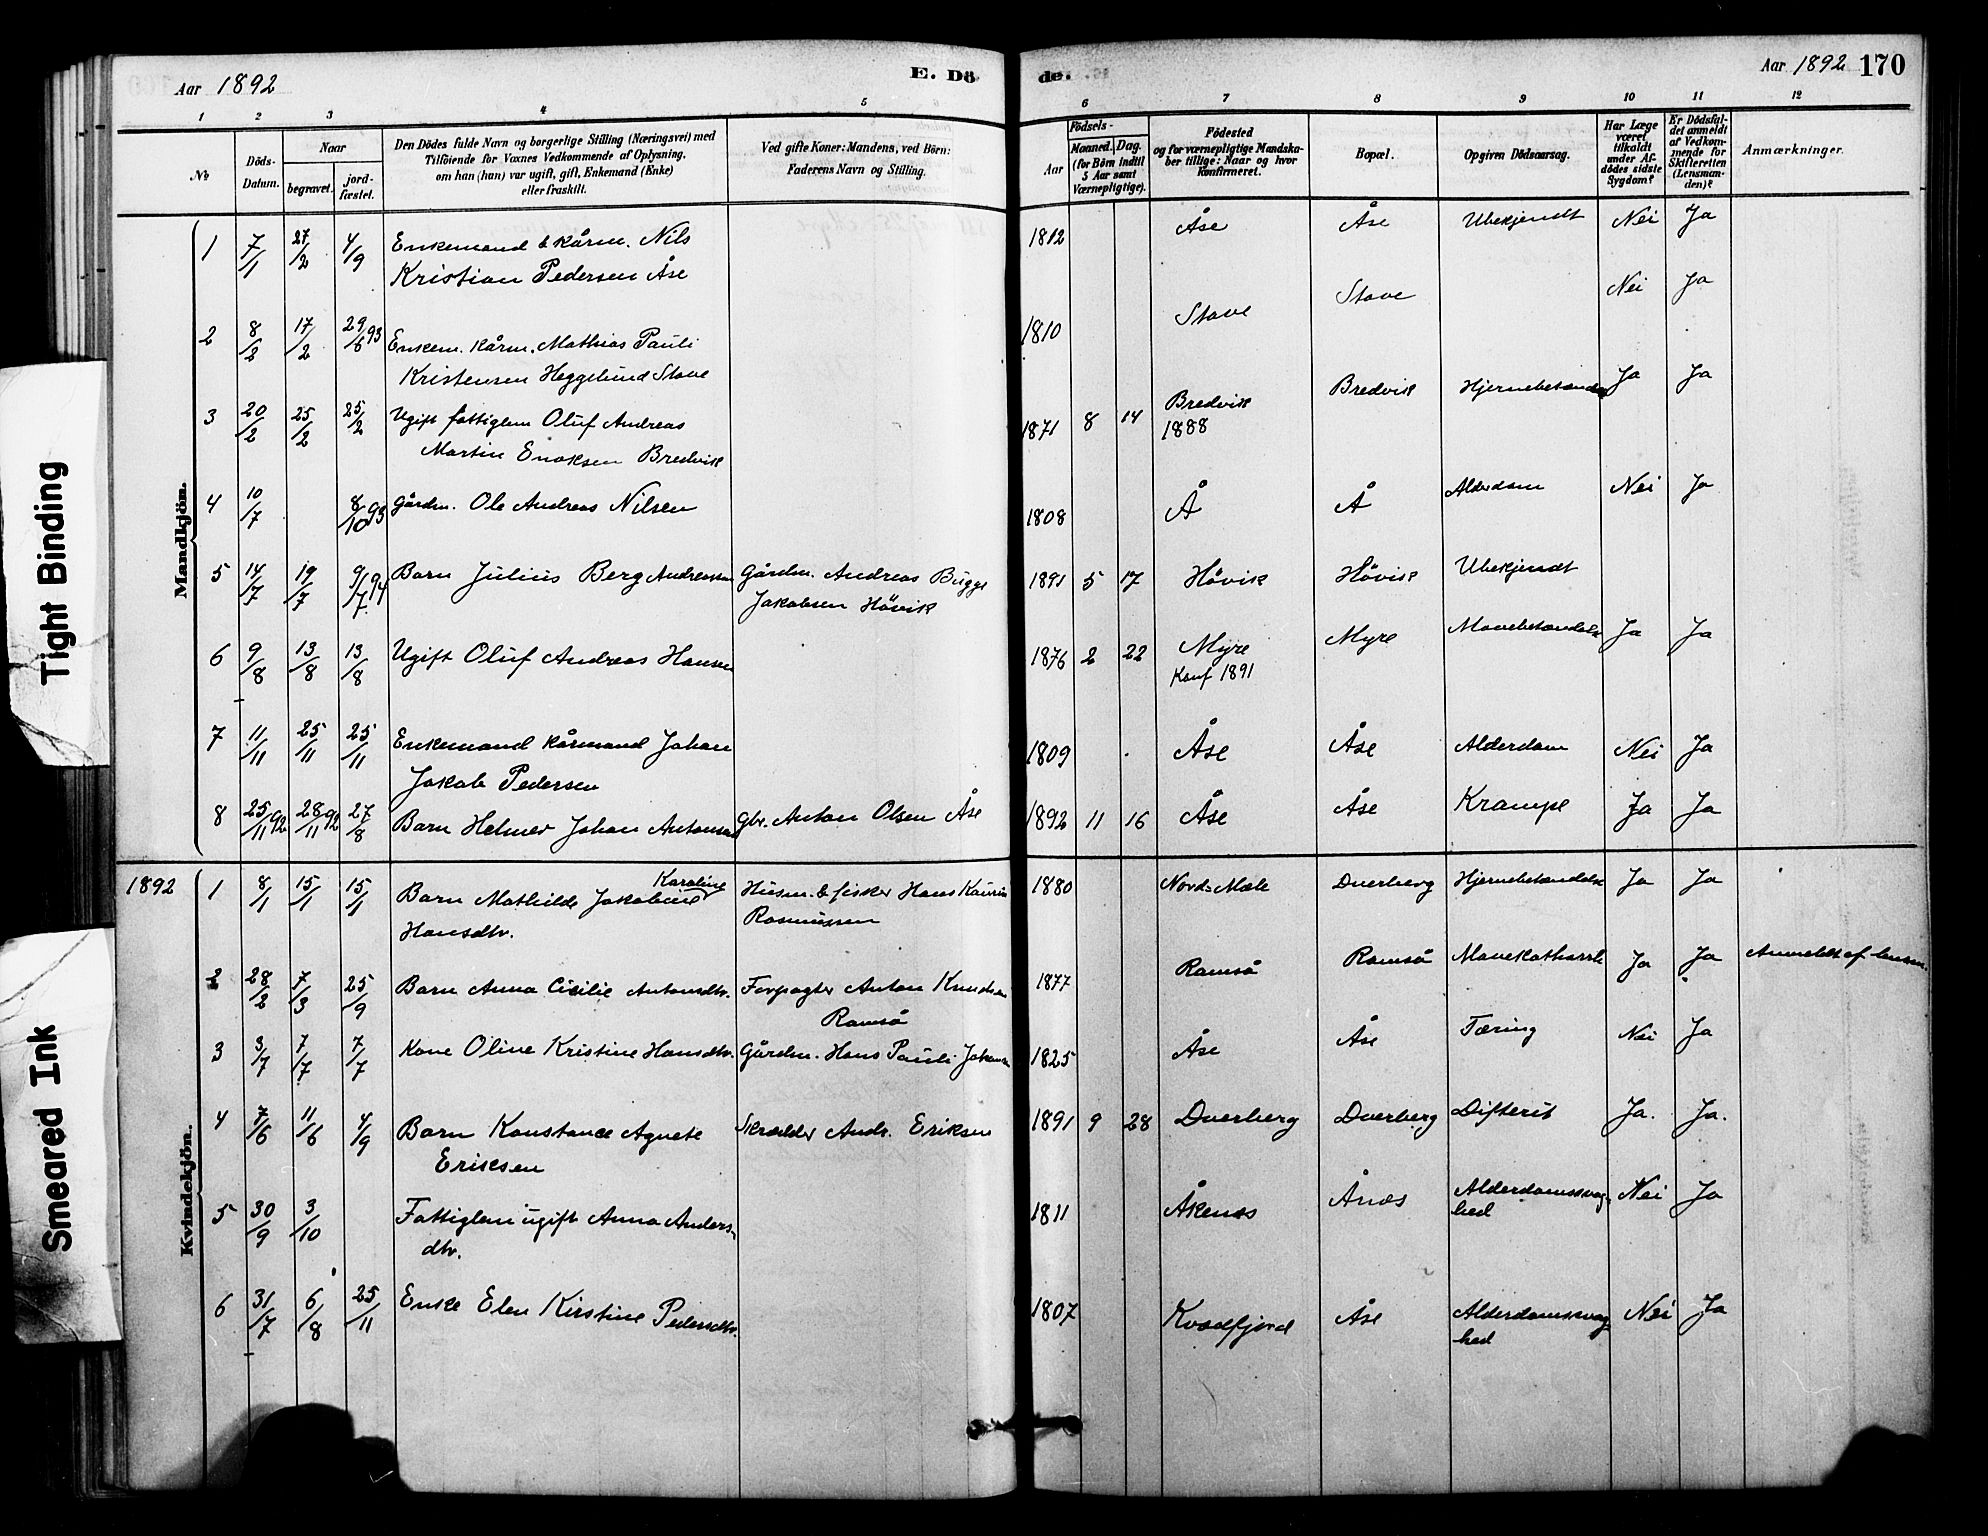 Aar 1892
E. Dö
de.
Aar 1892 170
1 2 3 4 5 6 7 8 9 10 11 12
No
Döds-
Datum.
Naar
begravet.
jord-
fæstet.
Den Dödes fulde Navn og borgerlige Stilling (Næringsvei) med
Tilföiende for Voxnes Vedkommende af Oplysning,
om han (hun) var ugift, gift, Enkemand (Enke)
eller fraskilt.
Ved gifte Koner: Mandens, ved Börn:
Faderens Navn og Stilling.
Födsels-
Aar
Maaned. Dag.
(for Börn indtil
5 Aar samt
Værnepligtige).
Födested
og for værnepligtige Mandska-
ber tillige: Naar og hvor
konfirmeret.
Bopæl.
Opgiven Dödsaarsag.
Har Læge
været
tilkaldt
under Af-
dödes sidste
Sygdom?
Er Dödsfal-
det anmeldt
af Vedkom-
mende for
Skifteretten
(Lensman-
den)?
Anmærkninger.
Tight Binding
Smeared Ink
Mandkjön.
1 7/1 27/2 4/9 Enkemand & kårm. Nils 1812 Åse Åse Ubekjendt Nei Ja
Kristian Pedersen Åse
2 8/2 17/2 29/6 93 Enkem. kårm. Mathias Pauli 1810 Stave Stave Nei Ja
Kristensen Heggelund Stave
3 20/2 25/2 25/2 Ugift fattiglem Oluf Andreas 1871 8 14 Bredvik Bredvik Ja Ja
Martin Enoksen Bredvik 1888
4 10/7 8/10 93 Gårdm. Ole Andreas Nilsen 1808 Å Å Alderdom Nei Ja
5 14/7 19/7 9/7 94 Barn Julius Berg Andreassen Gårdm. Andreas Bugge 1891 5 17 Hövik Hövik Ubekjendt
Jakobsen Hövik
6 9/8 13/8 13/8 Ugift Oluf Andreas Hansen 1876 2 22 Myre Myre Mavebetændelse Ja Ja
Konf 1891
7 11/11 25/11 25/11 Enkemand kårmand Johan 1809 Åse Åse Alderdom Nei Ja
Jakob Pedersen
8 25/11 92 28/11 92 27/8 Barn Helmer Johan Antonsen Gbr. Anton Olsen Åse 1892 11 16 Åse Åse Krampe Ja Ja
Kvindekjön.
1892 1 8/1 15/1 15/1 Barn Mathilde Jakobine Karoline Husm. & fisker Hans 1880 Nord-Mæle Dverberg Hjernebetændelse Ja Ja
Hansdtr. Rasmussen
2 28/2 7/3 25/9 Barn Anna Cicilie Antonsdtr. Forpagter Anton Knudsen 1877 Ramså Ramså Ja Ja Anmeldt af lensm.
Ramså
3 3/7 7/7 7/7 Kone Oline Kristine Hansdtr. Gårdm. Hans Pauli Johansen 1825 Åse Åse Tæring Nei Ja
4 7/6 11/6 4/9 Barn Konstance Agnete Skrædder Andr. Eriksen 1891 9 28 Dverberg Dverberg Difterit Ja. Ja.
Eriksen
5 30/9 3/10 Fattiglem ugift Anna Anders- 1811 Åkenes Ånes Alderdomssvag- Nei Ja
dtr. hed
6 31/7 6/8 25/11 Enke Elen Kirstine Pedersdtr. 1807 Kvædfjord Åse Alderdomssvag- Nei Ja
hed